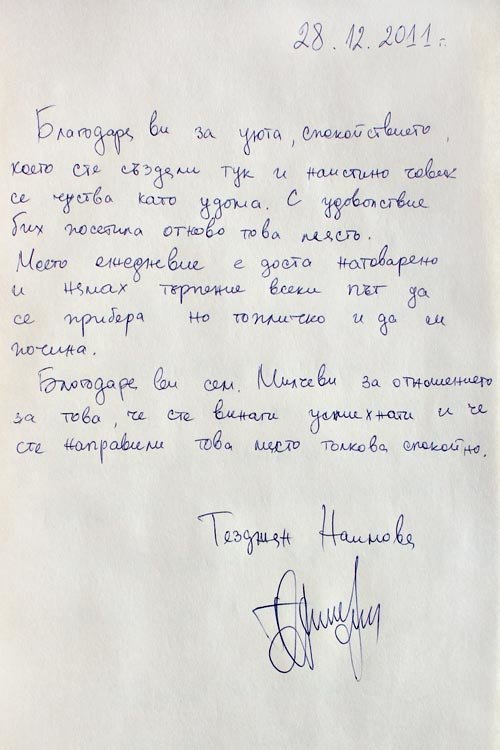 28.12.2011г.
Благодаря ви за уюта, спокойствието,
което сте създали тук и наистина човек
се чуства като удома. С удоволствие
бих посетила отново това място.
Моето ежедневие е доста натоварено
и нямах търпение всеки път да
се прибера на топличко и да си
почина.
Благодаря ви сем. Милчеви за отношението
за това, че сте винаги усмихнати и че
сте направили това място толкова спокойно.
Тезджан Наимова